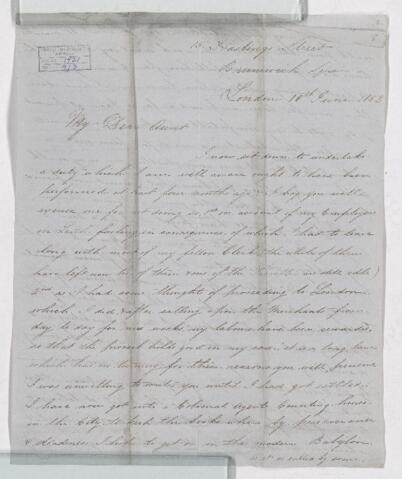 Hastings Street
Brunswick Sqre
London 18th June 1853
My Dear Aunt
I now sit down to undertake
a duty which I am well aware ought to have been
performed at least four months ago & I hope you will
excuse me for not doing so, 1st on account of my Employers
in Leith failing in consequence of which I had to leave
along with most of my fellow Clerks the whole of them
have left
2nd as I had some thoughts of proceeding to London
which I did & after calling upon the Merchants from
day to day for weeks my labours have been rewarded
so that the proverb holds good in my case it is a long lane
which has no turning for these reasons you will perceive
I was unwilling to write you until I had got settled.
I have now got into a Colonial Agents Counting house
in the City to keep the books where by perseverance
& steadiness I hope to get on in the modern Babylon
as it is called by some